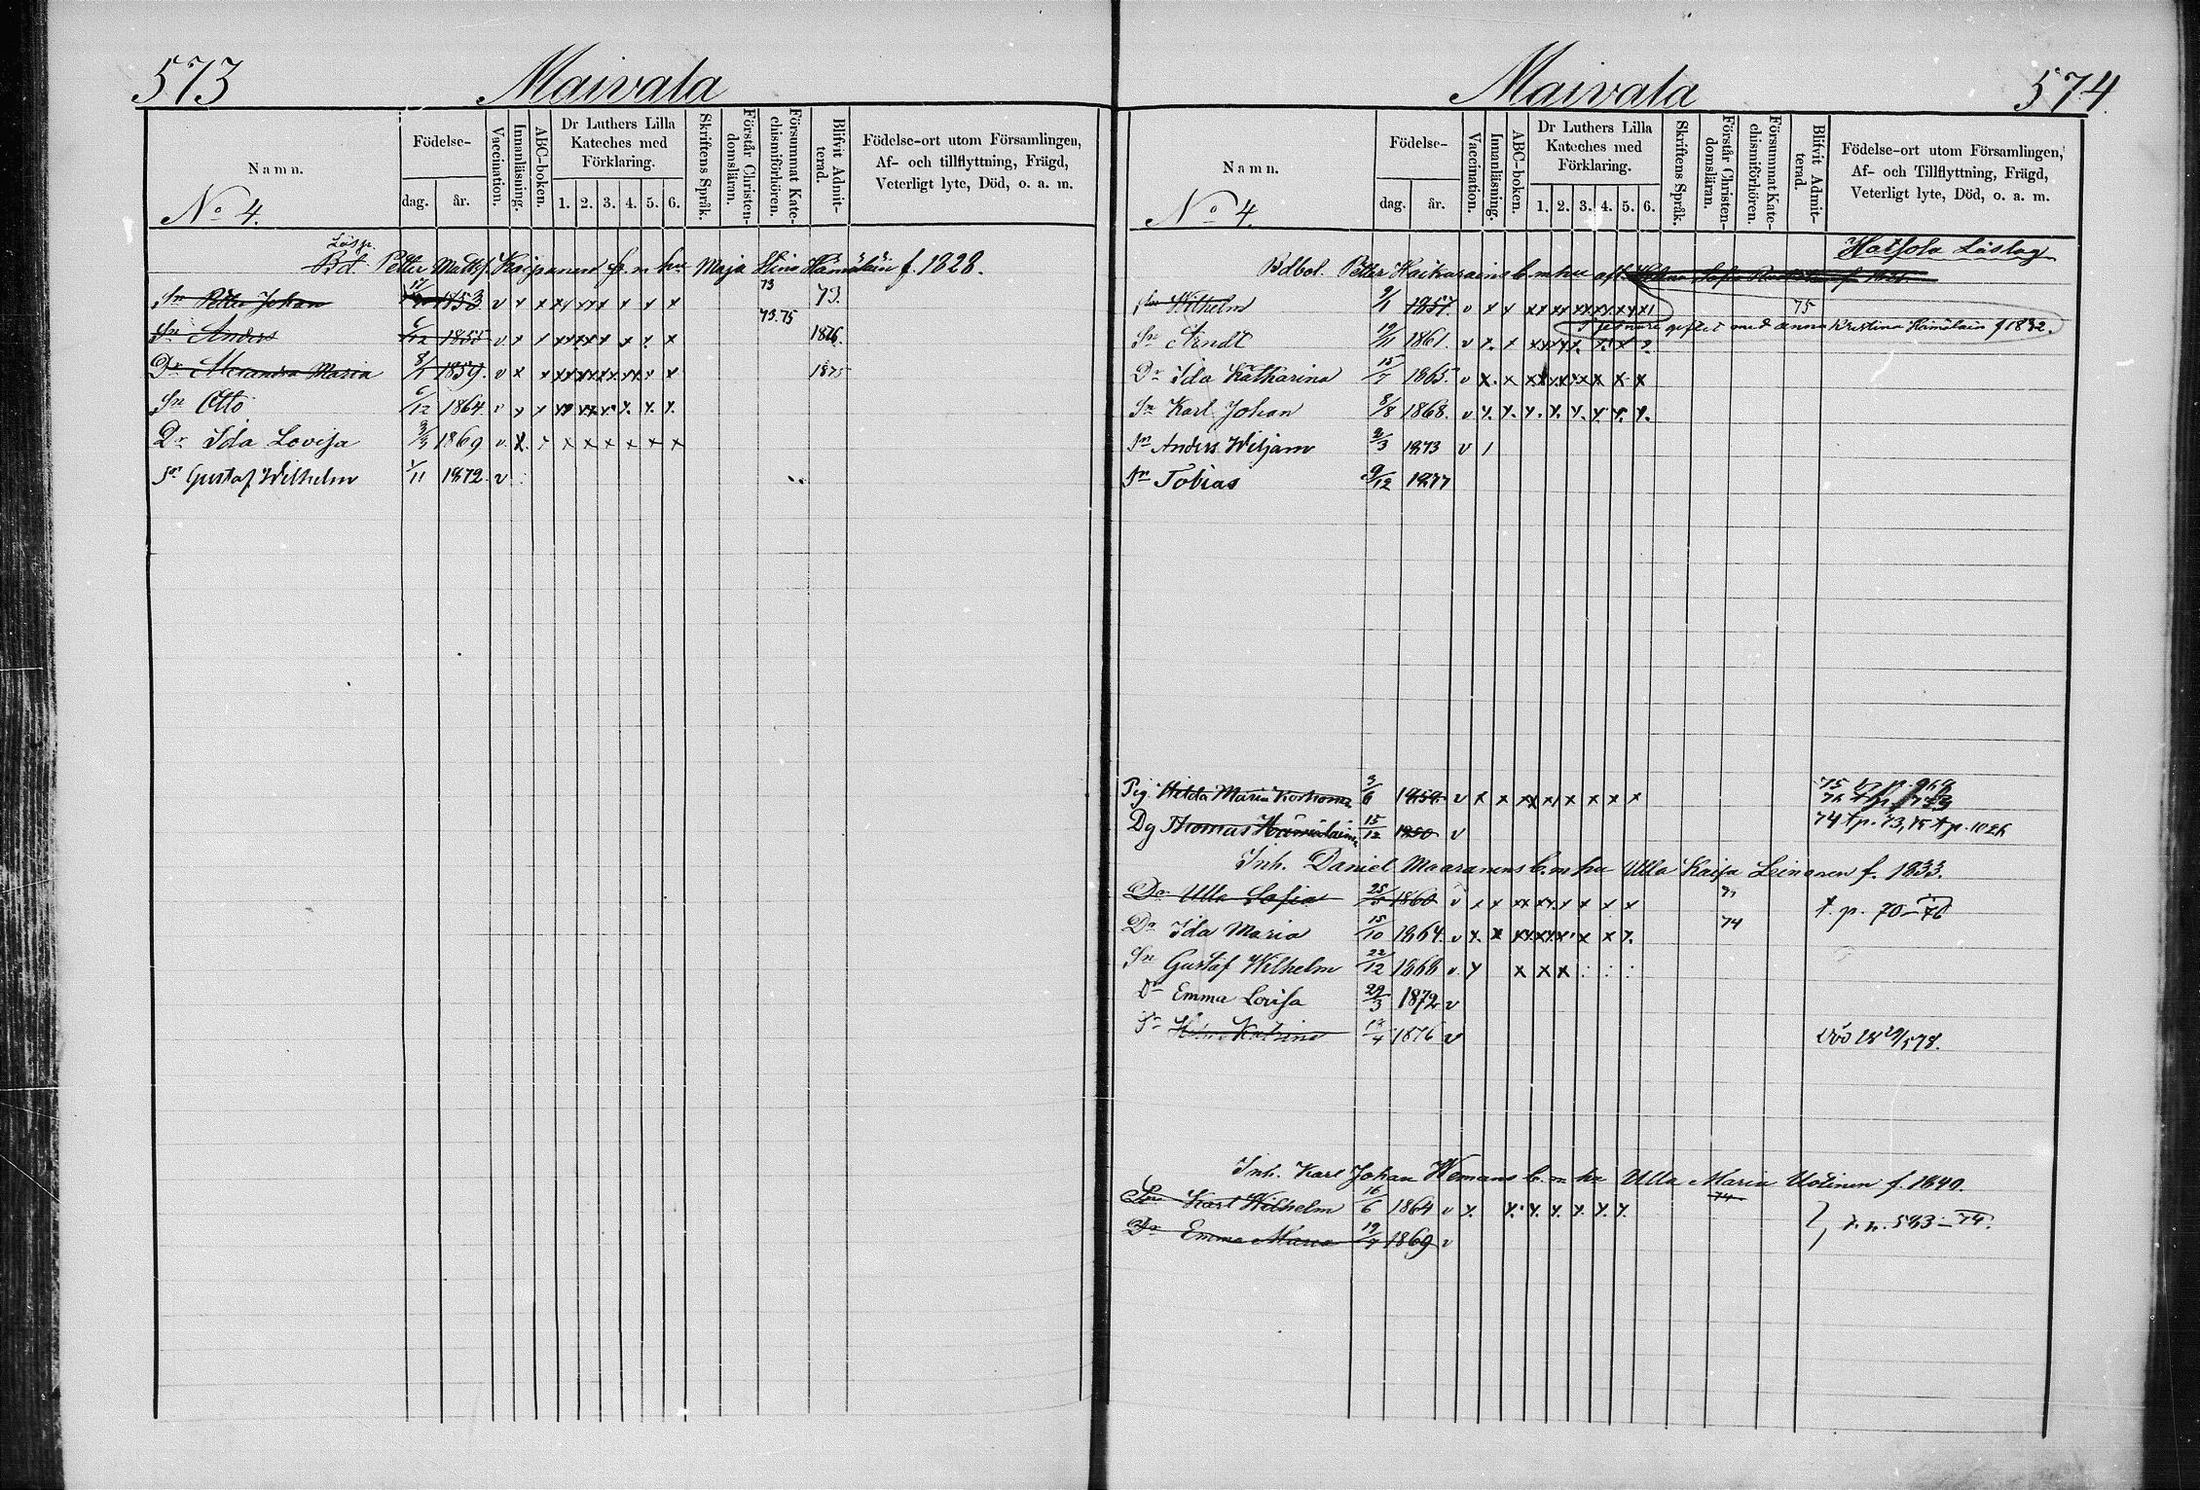 573 Maivala
Namn. Födelse- dag. år. Vaccination. Innanläsning. ABC-boken. Dr Luthers Lilla Kateches med Förklaring. 1. 2. 3. 4. 5. 6. Skriftens Språk. Förstår Christen-domsläran. Försummat Kate-chismiförhören. Blifvit Admit-terad. Födelse-ort utom Församlingen, Af- och tillflyttning, Frägd, Veterligt lyte, Död, o. a. m.
No 4.
Petter Matts. Kaipanen b. m. hu Maja Stina Hämäläin f. 1828.
Sn Petter Johan 1853 v x x x x x x x x 73 73.
Sn Anders 6/12 1855 v x x x x x x x x 73.75 1876.
Dr Alexandra Maria 8/1 1859. v x x x x x x x x 1875
Sn Otto 6/12 1864 v x x x x x x x x
Dr Ida Lovisa 3/3 1869 v x x x x x x x x
Sn Gustaf Wilhelm 1/11 1872. v
Maivala 574.
Namn. Födelse- dag. år. Vaccination. Innanläsning. ABC-boken. Dr Luthers Lilla Kateches med Förklaring. 1. 2. 3. 4. 5. 6. Skriftens Språk. Förstår Christen-domsläran. Försummat Kate-chismiförhören. Blifvit Admit-terad. Födelse-ort utom Församlingen, Af- och Tillflyttning, Frägd, Veterligt lyte, Död, o. a. m.
No 4.
Hatsola Läslag
Bdbol. Petter Haikarainens b. m. hu afl.
Sn Wilhelm 9/1 1857 v x x x x x x x x 75
giftet med Anna Kristina Hämäläin f 1832.
Sn Arndt 19/11 1861. v x x x x x x x x
Dr Ida Katharina 15/7 1865. v x x x x x x x x
Sn Karl Johan 8/8 1868. v x x x x x x x x
Sn Anders Wiljam 2/3 1873 v /
Sn Tobias 9/12 1877
Pig Hilda Maria 3/6 1859 v x x x x x x x x
Dg Thomas Hämäläin 15/12 1850 v
Inh. Daniel Maaranens b. m hu Ulla Kaisa Leinonen f. 1833.
Dr Ulla Sofia 25/5 1860 v x x x x x x x x t. p. 70-76
Dr Ida Maria 15/10 1864. v x x x x x x x x 74
Sn Gustaf Wilhelm 22/12 1868 v x x x x
Dr Emma Lovisa 29/3 1872 v
Katrina 1876 v
Inh. Karl Johan Hemans b. m hu Ulla Maria Uotinen f. 1840.
Sn Karl Wilhelm 16/6 1864 v x x x x x x x 74
Dr Emma Maria 19/7 1869 v t. p. 583-74.